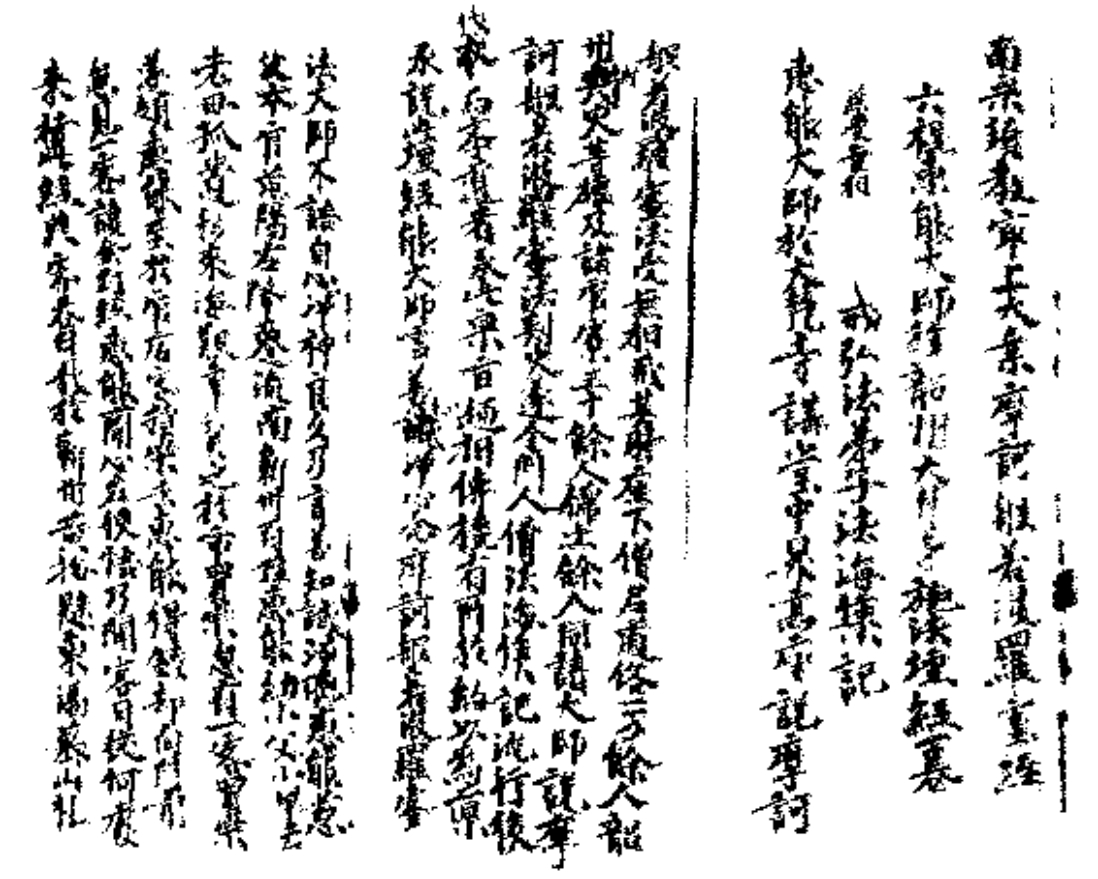 南宗頓教最上大乘摩訶般若波羅蜜經
六祖惠能大師於韶州大梵寺施法壇經一卷
兼受無相　戒弘法弟子法海集記
惠能大師於大梵寺講堂中昇高座說摩訶
般若波羅蜜法受無相戒其時座下僧尼道俗一万餘人韶
州刺史等據及諸官寮三十餘人儒士餘人同請大師說摩
訶般若波羅蜜法刺史遂令門人僧法海集記流行後
代與學道者承此宗旨遞相傳授有所於約以為稟
承說此壇經能大師言善知識淨心念摩訶般若波羅蜜
法大師不語自心淨神良久乃言善知識淨聽惠能慈
父本官范陽左降遷流南新州百姓惠能幼小父小早亡
老母孤遺移來海艱辛貧乏於市賣柴忽有一客買柴
遂領惠能至於官店客將柴去惠能得錢却向門前
忽見一客讀金剛經惠能一聞心名便悟乃聞客曰從何處
來持此經典客答曰我於蘄州黃梅縣東馮墓山礼